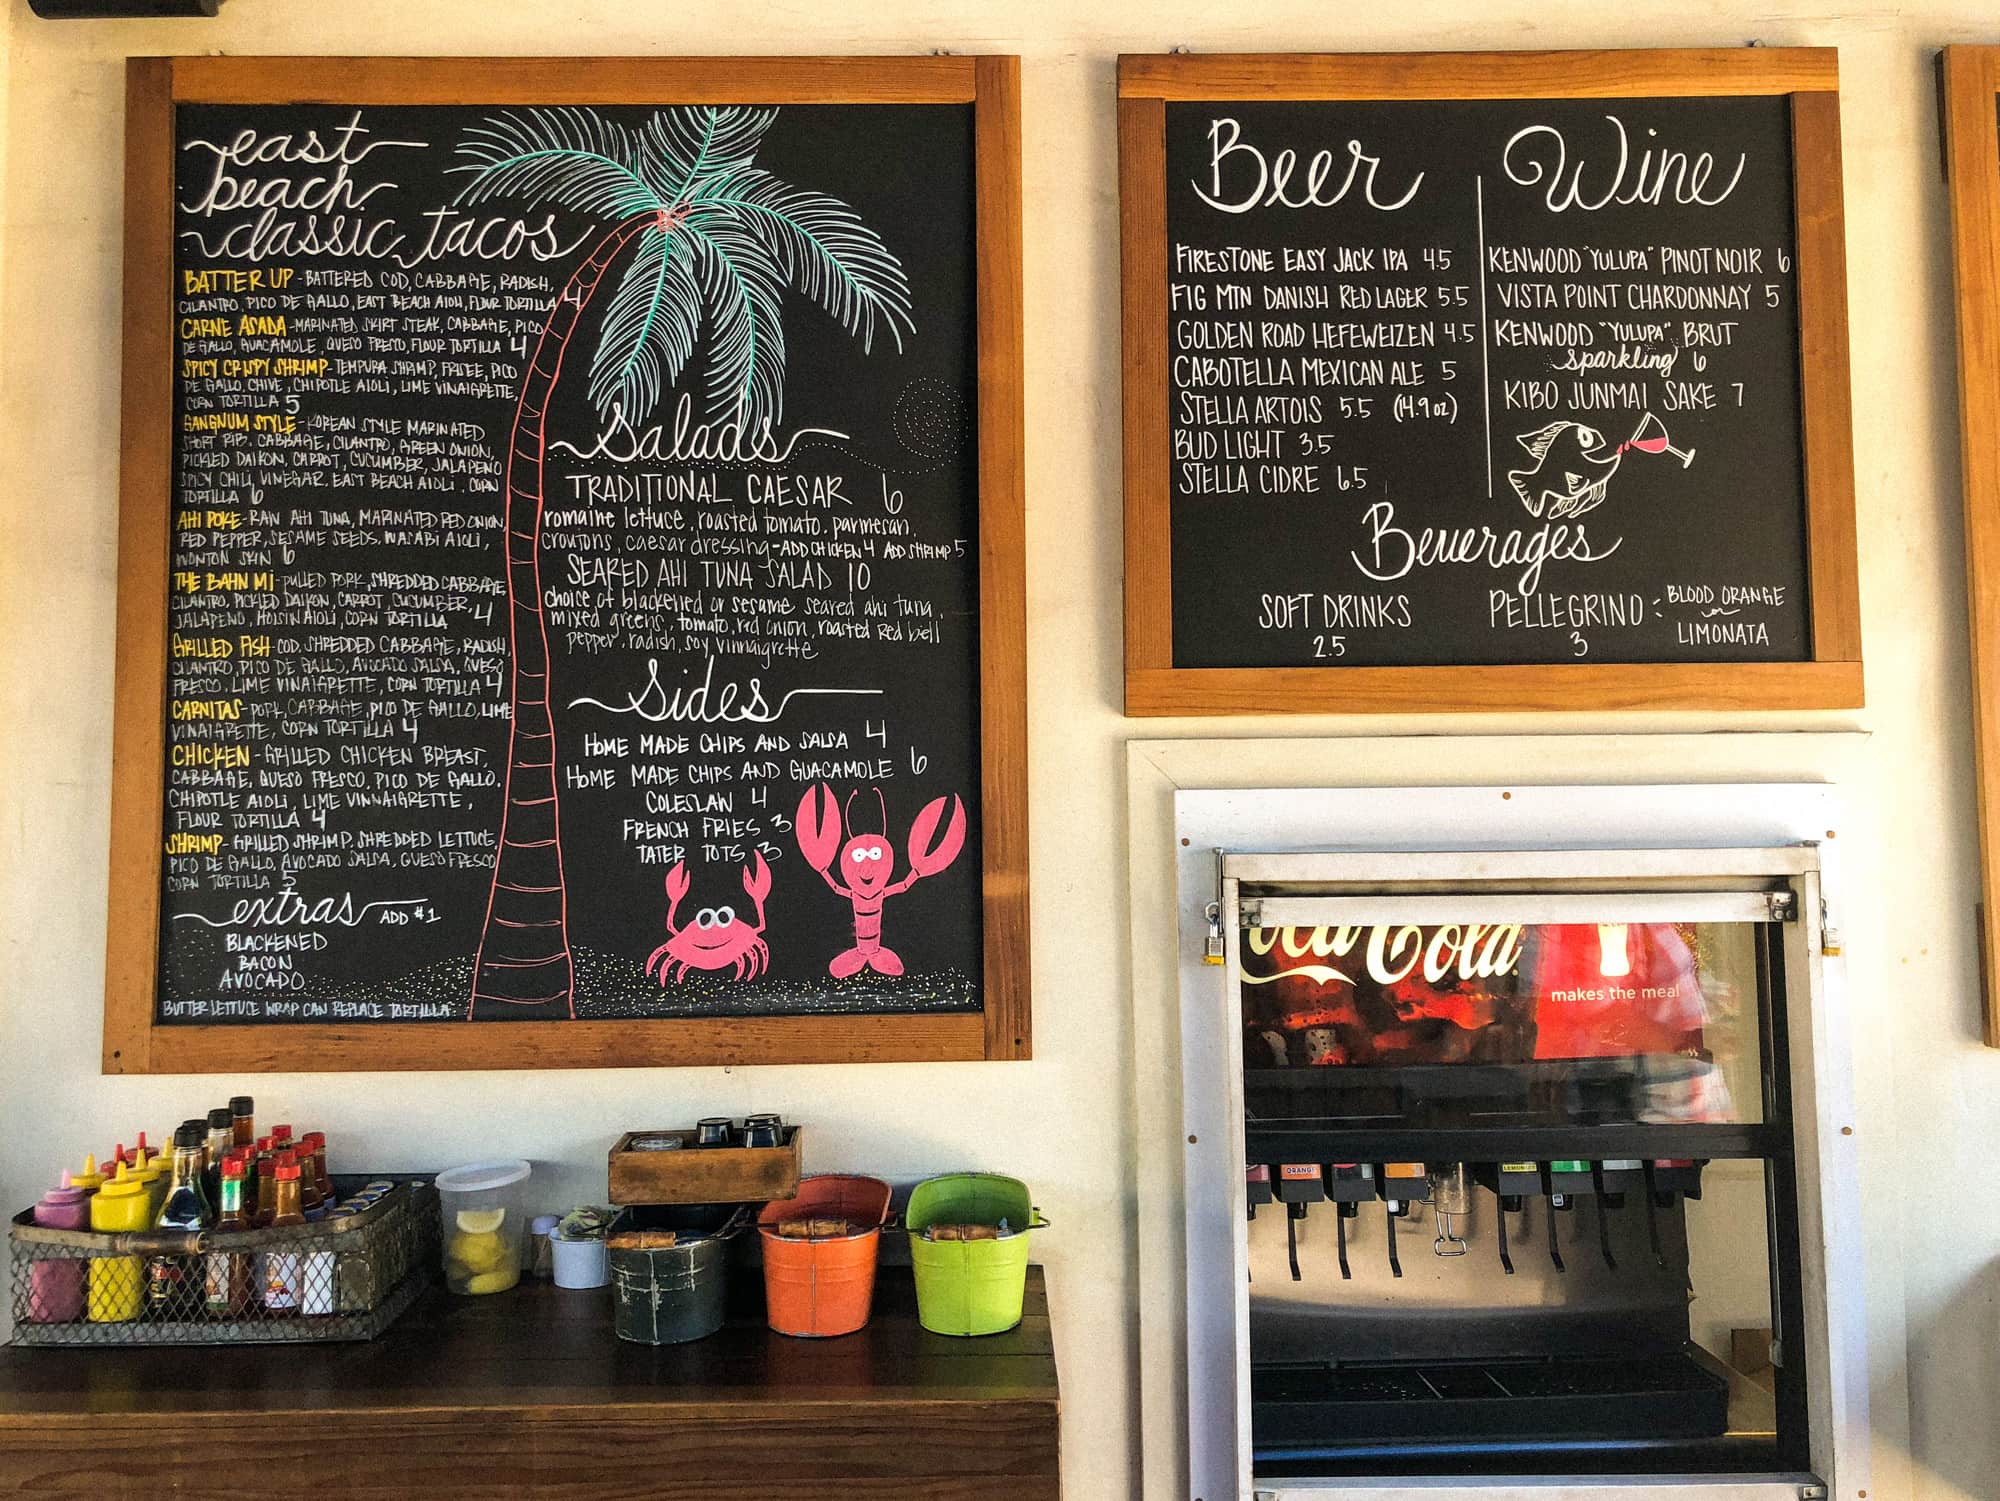 east
beach
classic tacos
BATTER UP - BATTERED COD, CABBAGE, RADISH,
CILANTRO, PICO DE GALLO, EAST BEACH AIOLI, FLOUR TORTILLA 4
CARNE ASADA - MARINATED SKIRT STEAK, CABBAGE, PICO
DE GALLO, GUACAMOLE, QUESO FRESCO, FLOUR TORTILLA 4
SPICY CRISPY SHRIMP - TEMPURA SHRIMP, FRISEE, PICO
DE GALLO, CHIVE, CHIPOTLE AIOLI, LIME VINAIGRETTE,
CORN TORTILLA 5
GANGNUM STYLE - KOREAN STYLE MARINATED
SHORT RIB, CABBAGE, CILANTRO, GREEN ONION,
PICKLED DAIKON, CARROT, CUCUMBER, JALAPENO
SPICY CHILI, VINEGAR, EAST BEACH AIOLI, CORN
TORTILLA 6
AHI POKE - RAW AHI TUNA, MARINATED RED ONION,
RED PEPPER, SESAME SEEDS, WASABI AIOLI,
WONTON SKIN 6
THE BAHN MI - PULLED PORK, SHREDDED CABBAGE,
CILANTRO, PICKLED DAIKON, CARROT, CUCUMBER,
JALAPENO, HOISIN AIOLI, CORN TORTILLA 4
GRILLED FISH - COD, SHREDDED CABBAGE, RADISH,
CILANTRO, PICO DE GALLO, AVOCADO SALSA, QUESO
FRESCO, LIME VINAIGRETTE, CORN TORTILLA 4
CARNITAS - PORK, CABBAGE, PICO DE GALLO, LIME
VINAIGRETTE, CORN TORTILLA 4
CHICKEN - GRILLED CHICKEN BREAST,
CABBAGE, QUESO FRESCO, PICO DE GALLO,
CHIPOTLE AIOLI, LIME VINNAIGRETTE,
FLOUR TORTILLA 4
SHRIMP - GRILLED SHRIMP, SHREDDED LETTUCE,
PICO DE GALLO, AVOCADO SALSA, QUESO FRESCO
CORN TORTILLA 5
extras ADD $1
BLACKENED
BACON
AVOCADO
BUTTER LETTUCE WRAP CAN REPLACE TORTILLA
Salads
TRADITIONAL CAESAR 6
romaine lettuce, roasted tomato, parmesan,
croutons, caesar dressing - ADD CHICKEN 4 ADD SHRIMP 5
SEARED AHI TUNA SALAD 10
choice of blackened or sesame seared ahi tuna,
mixed greens, tomato, red onion, roasted red bell
pepper, radish, soy vinnaigrette
Sides
HOME MADE CHIPS AND SALSA 4
HOME MADE CHIPS AND GUACAMOLE 6
COLESLAW 4
FRENCH FRIES 3
TATER TOTS 3
Beer
FIRESTONE EASY JACK IPA 4.5
FIG MTN DANISH RED LAGER 5.5
GOLDEN ROAD HEFEWEIZEN 4.5
CABOTELLA MEXICAN ALE 5
STELLA ARTOIS 5.5 (14.9 oz)
BUD LIGHT 3.5
STELLA CIDRE 6.5
Wine
KENWOOD "YULUPA" PINOT NOIR 6
VISTA POINT CHARDONNAY 5
KENWOOD "YULUPA" BRUT
sparkling 6
KIBO JUNMAI SAKE 7
Beverages
SOFT DRINKS
2.5
PELLEGRINO : BLOOD ORANGE
or
LIMONATA
3
Coca Cola
makes the meal
ORANGE